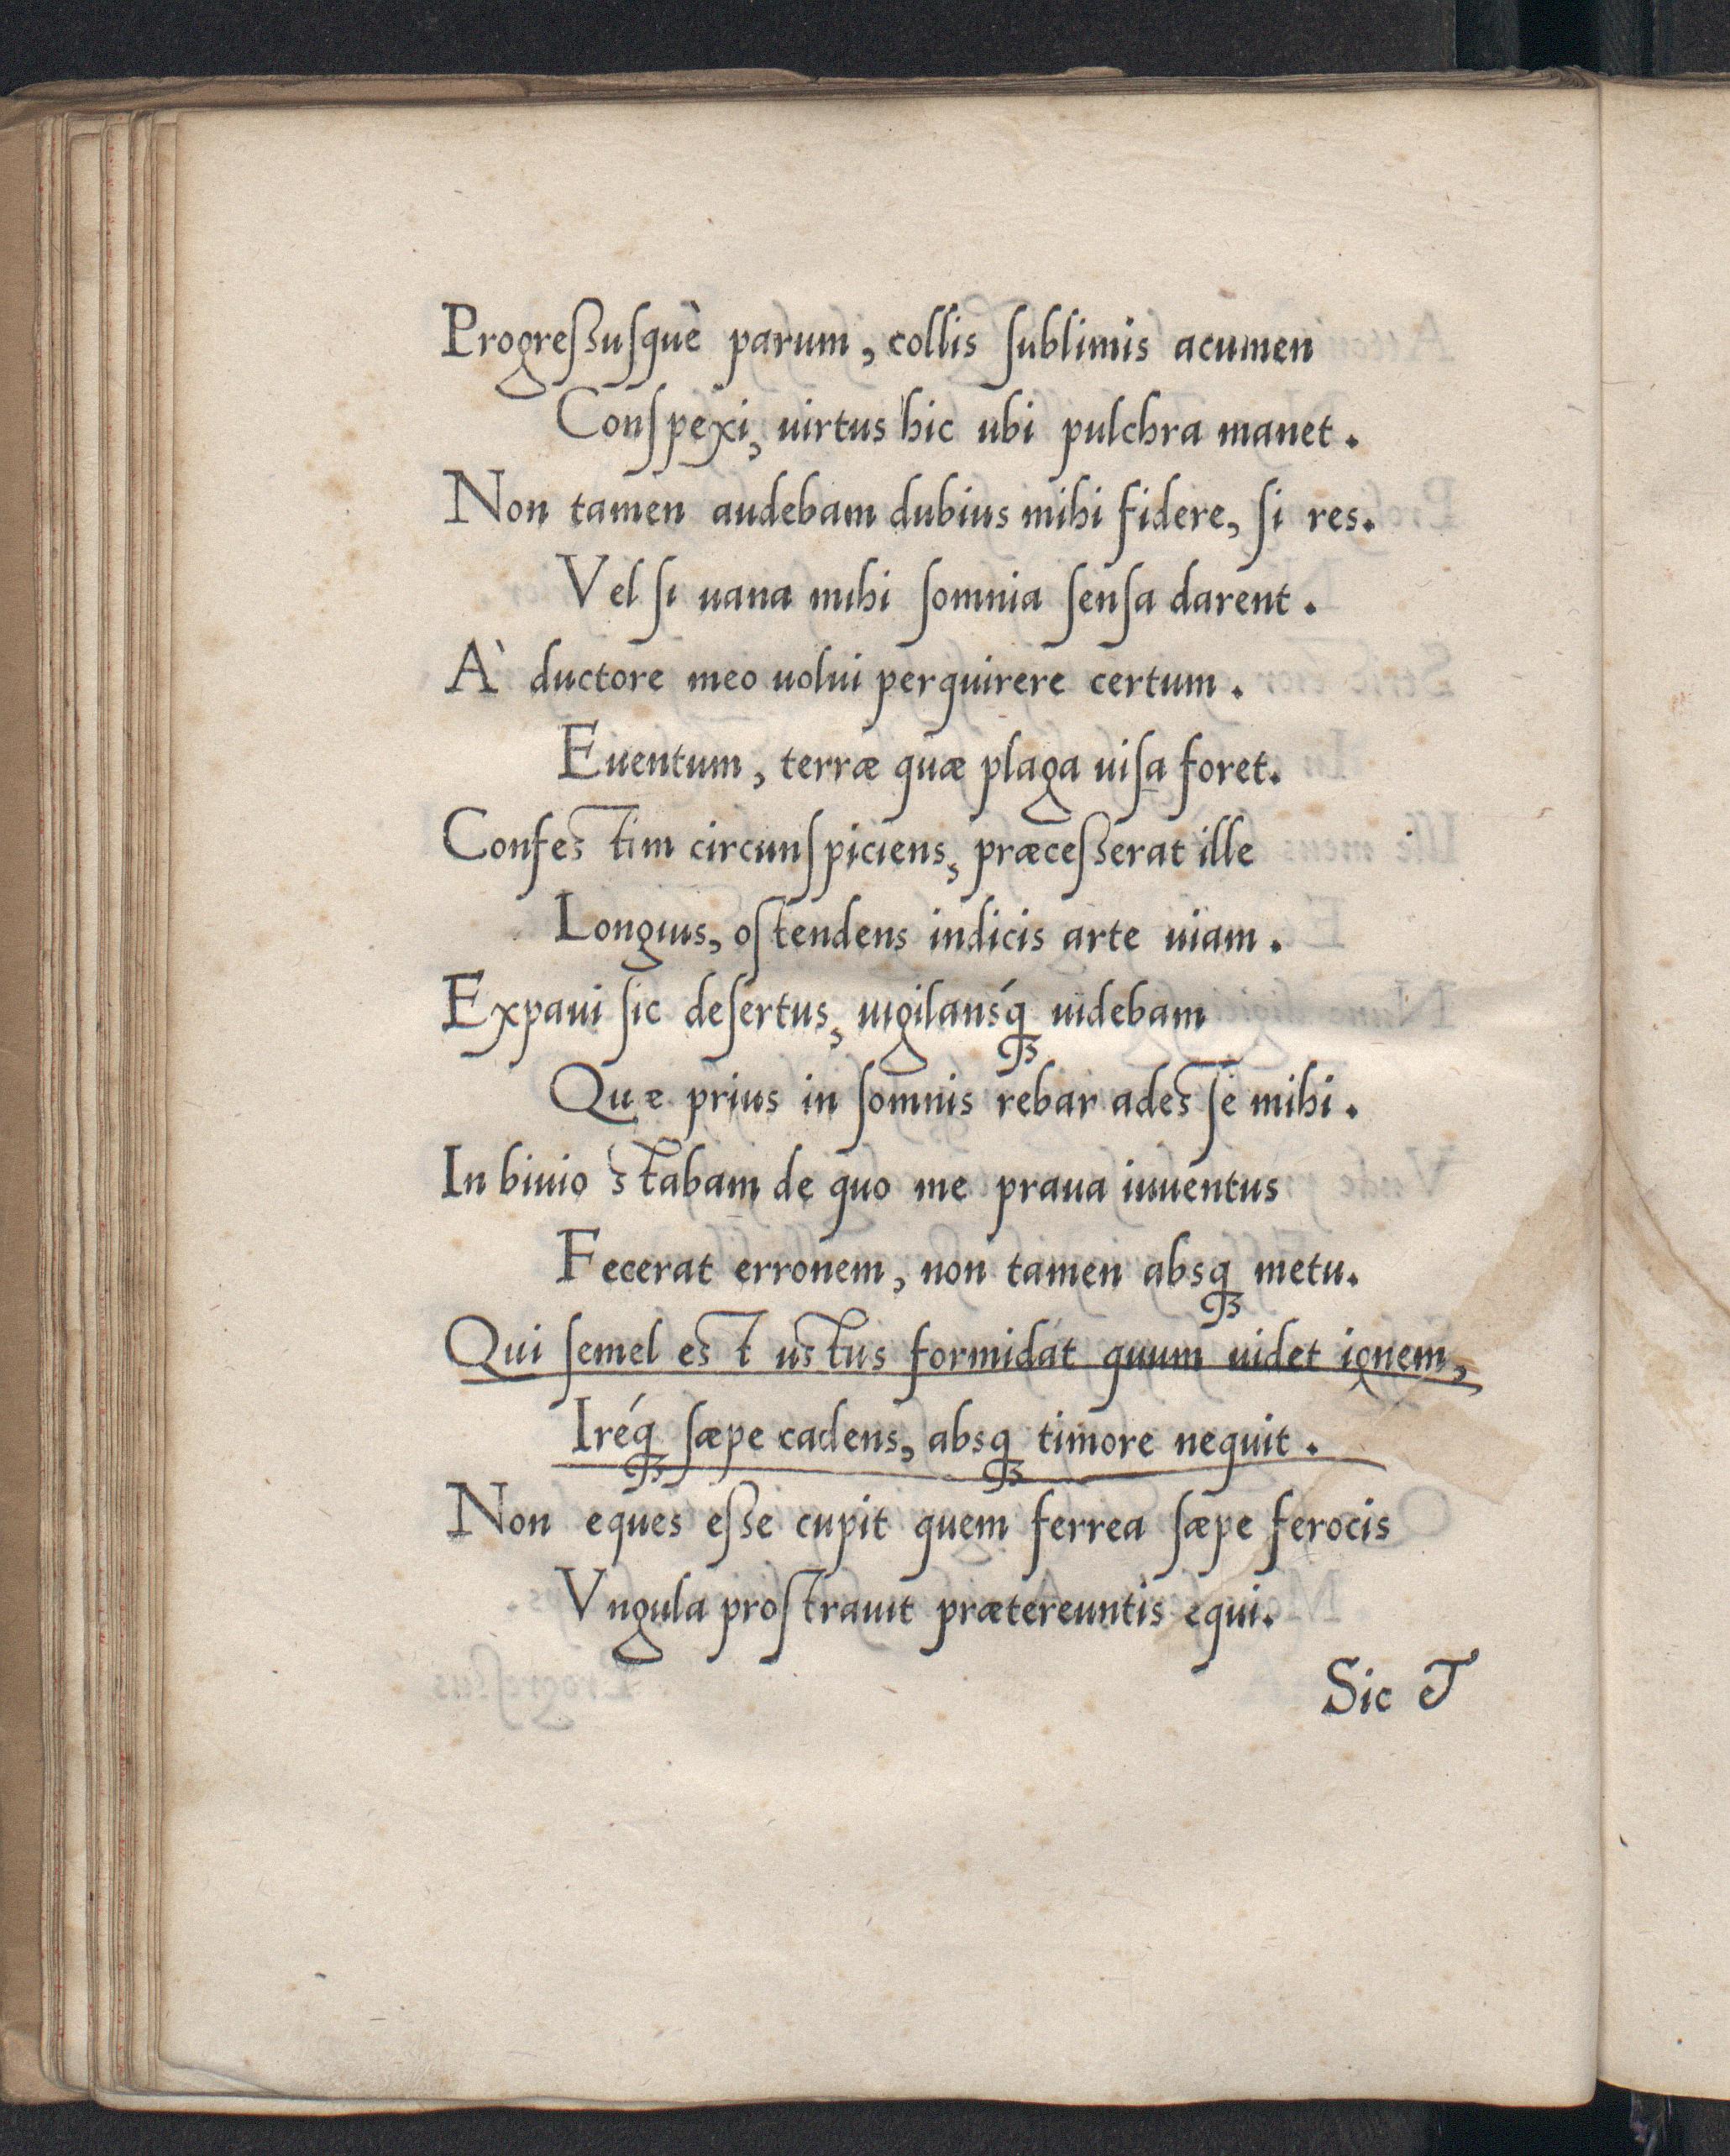 Progreſsuſquè parum, collis ſublimis acumen
Conſpexi, uirtus hic ubi pulchra manet.
Non tamen audebam dubius mihi fidere, ſi res.
Vel ſi uana mihi ſomnia ſenſa darent.
A' ductore meo uolui perquirere certum.
Euentum, terræ quæ plaga uiſa foret.
Confestim circunſpiciens, præceſserat ille
Longius, oſtendens indicis arte uiam.
Expaui ſic deſertus, uigilansq́ꝫ uidebam
Quæ prius in ſomnis rebar adesſe mihi.
In biuio stabam de quo me praua iuuentus
Fecerat erronem, non tamen absqꝫ metu.
Qui ſemel est ustus formidát quum uidet ignem,
Iréqꝫ ſæpe cadens, absqꝫ timore nequit.
Non eques eſse cupit quem ferrea ſæpe ferocis
Vngula proſtrauit prætereuntis equi.
Sic &